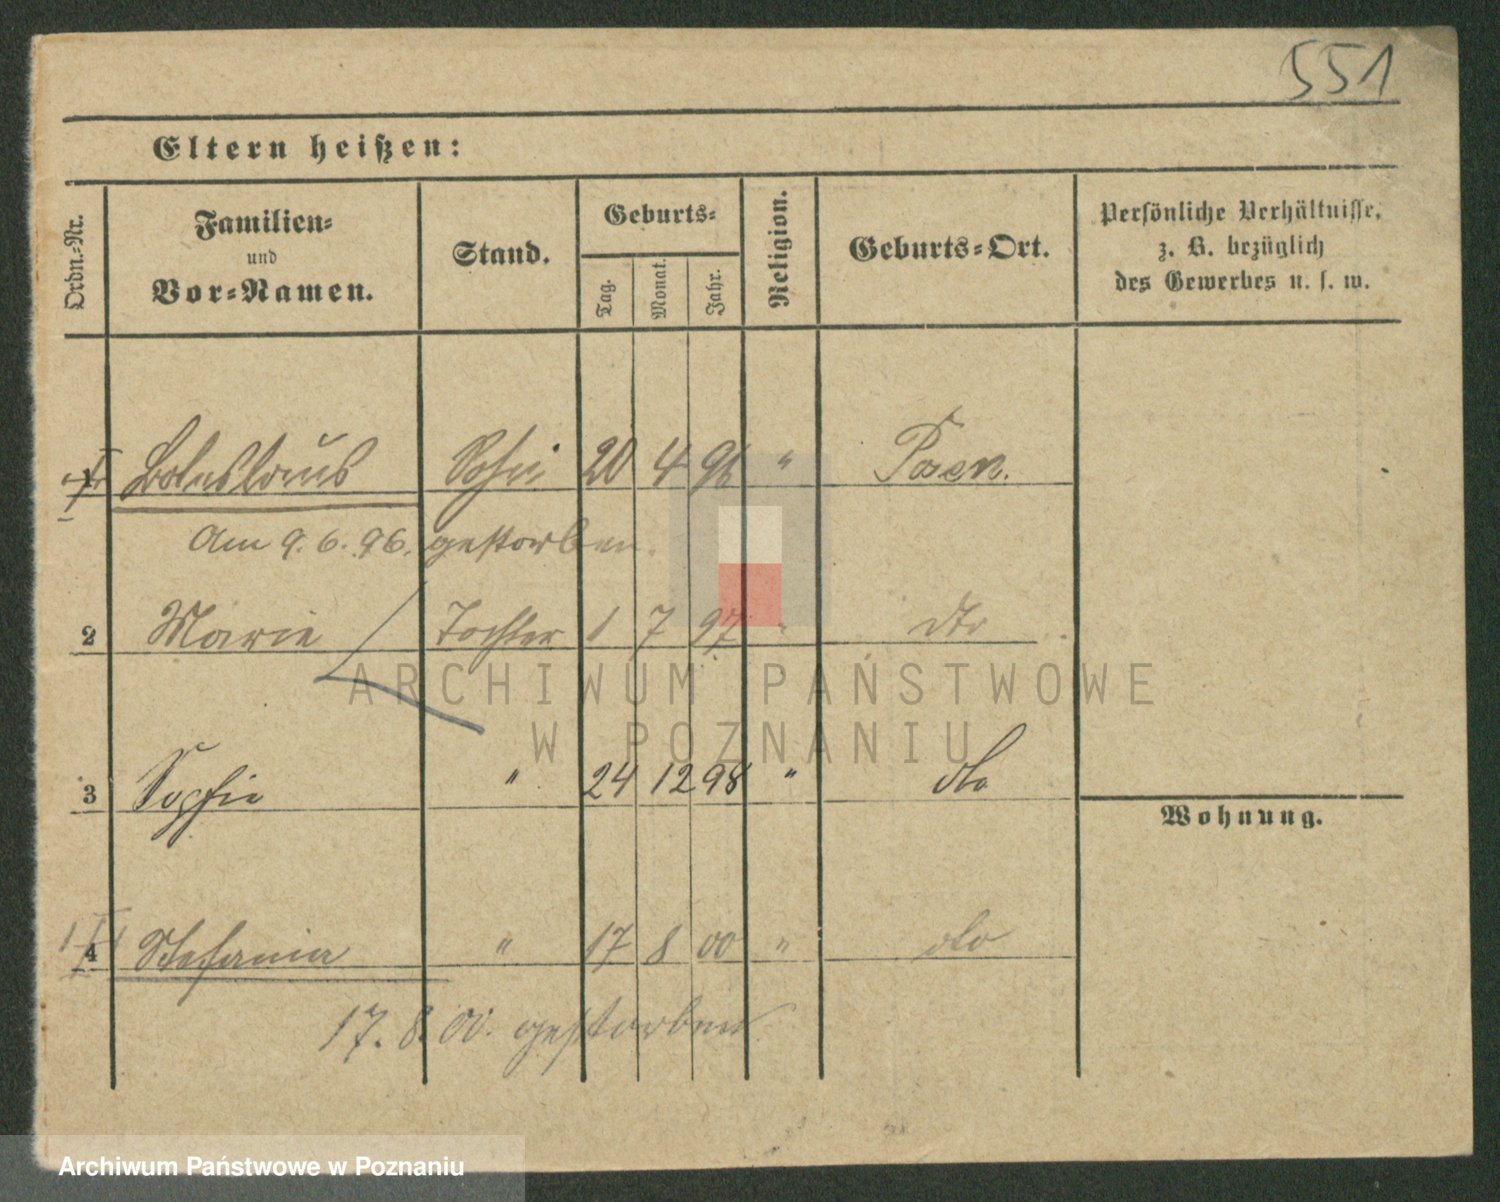 551
Eltern heißen:
Ordn.-Nr.
Familien-
und
Vor-Namen.
Stand.
Geburts-
Tag.
Monat.
Jahr.
Religion.
Geburts-Ort.
Persönliche Verhältnisse,
z. B. bezüglich
des Gewerbes u. s. w.
1 Boleslaus Sohn 20 4 96 " Posen.
Am 9.6.96. gestorben.
2 Marie Tochter 1 7 97 " dto
ARCHIWUM PAŃSTWOWE
W POZNANIU
3 Sophie " 24 12 98 " do
Wohnung.
4 Stefania " 17 8 00 " do
17.8.00. gestorben
Archiwum Państwowe w Poznaniu